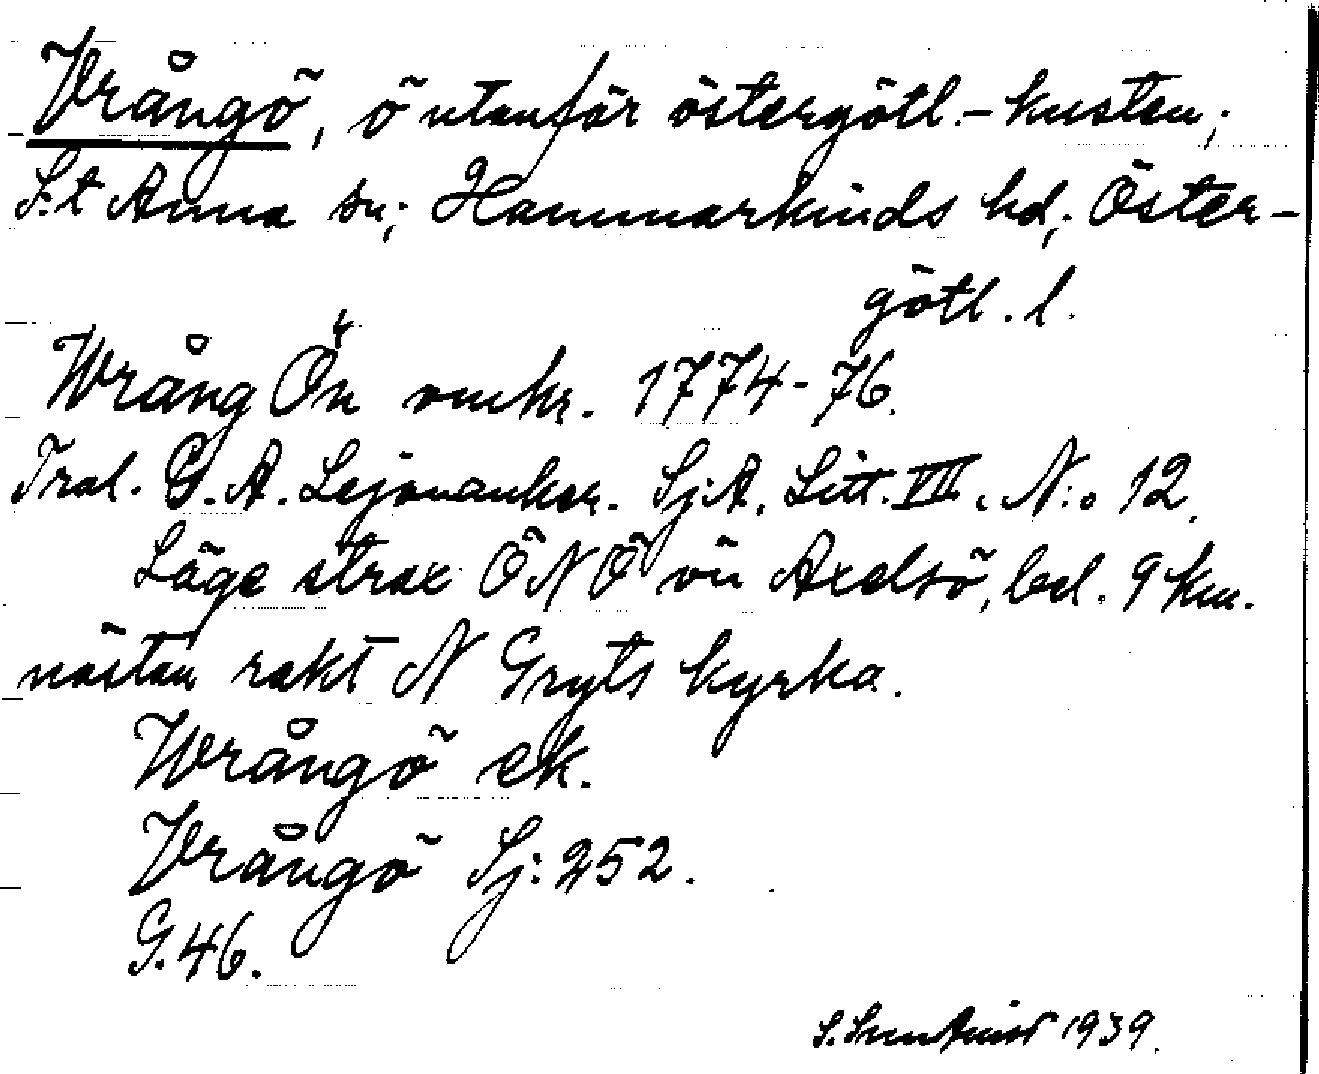 Vrångö, ö utanför östergötl.-kusten;
S:t Anna sn; Hammarkinds hd; Öster-
götl. l.
Wrång Ön omkr. 1774-76.
Tral. G. A. Lejonanker. Sj:A. Litt. VII. N:o 12.
Läge strax ÖNÖ on Axelsö, bel. 9 km.
nästan rakt N Gryts kyrka.
Wrångö ek.
Vrångö Sj: 252.
G. 46.
S. 1939.